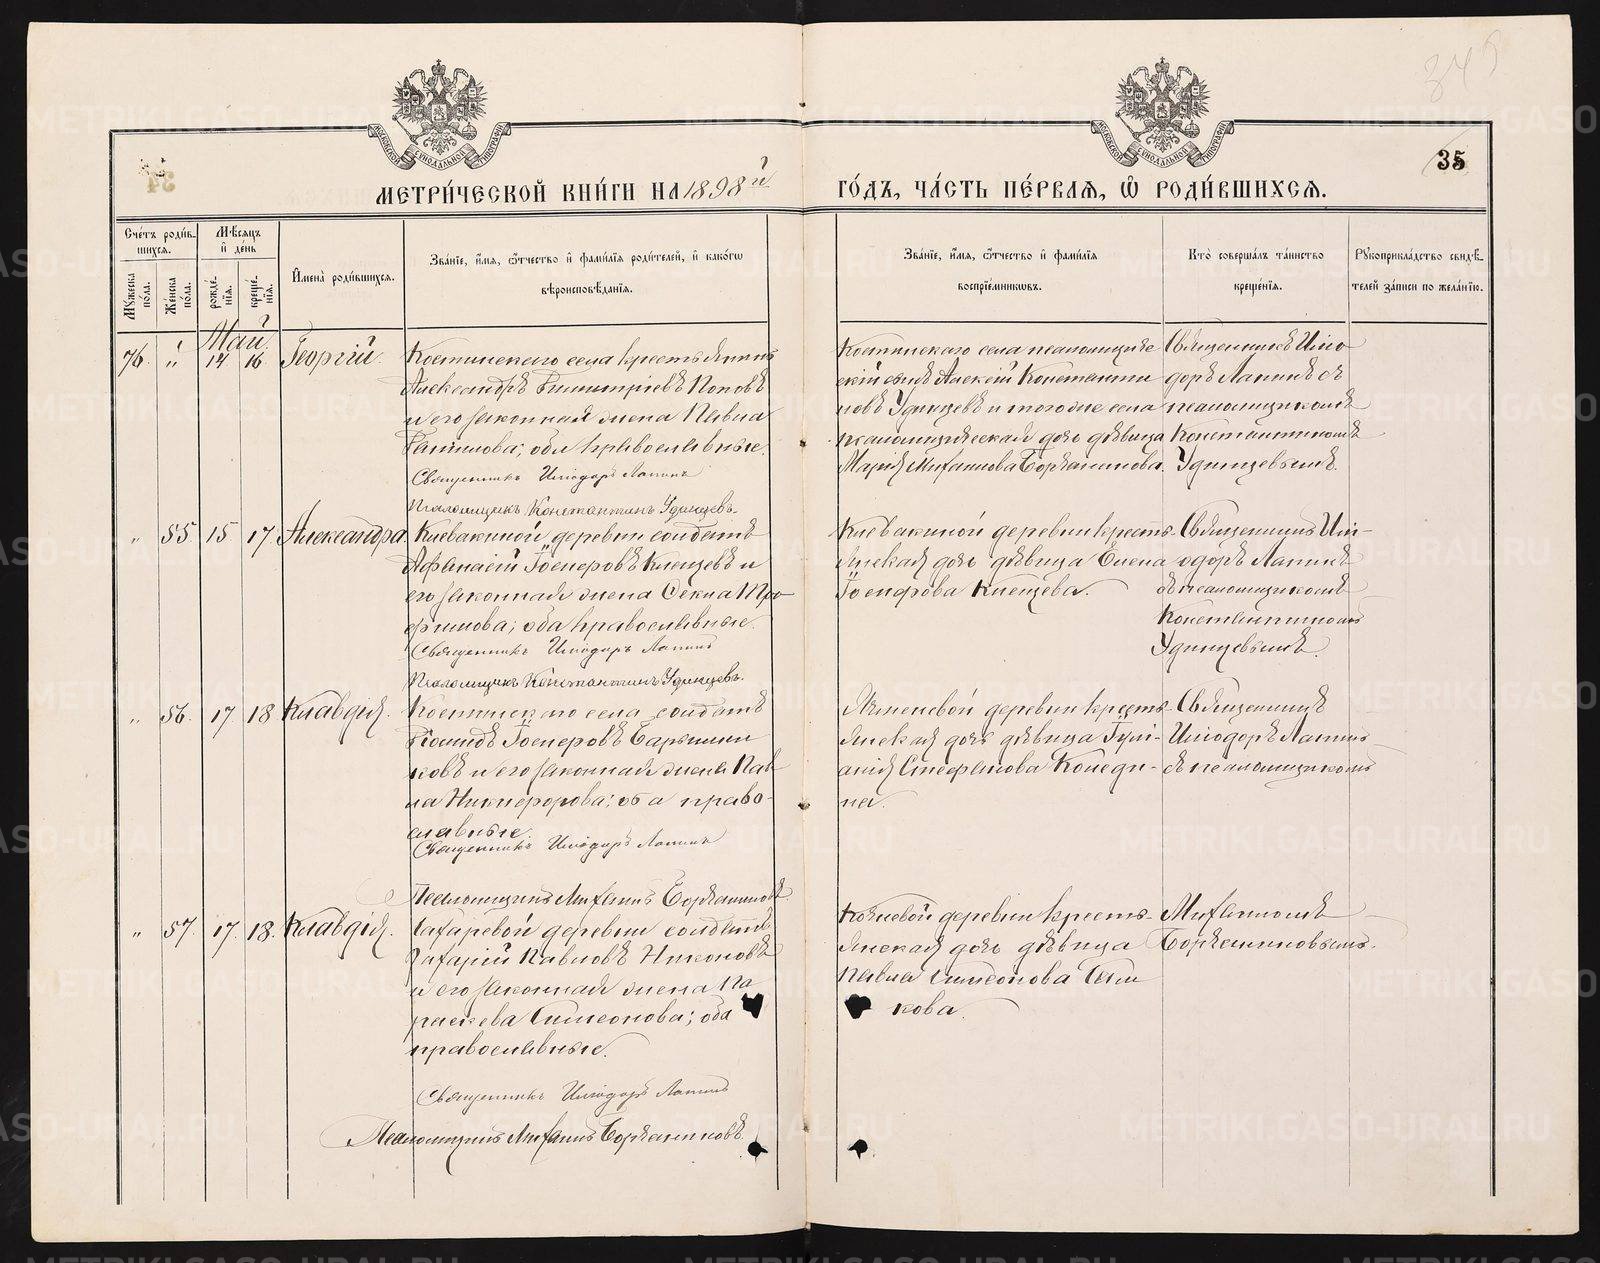 МЕТРИ́ЧЕСКОЙ КНИ́ГИ НА 1898й
ГО́ДЪ, ЧА́СТЬ ПЕ́РВАЯ, Ѡ РОДИ́ВШИХСЯ.
35
Сче́тъ роди́в-
шихся.
Му́жеска
по́ла.
Же́нска
по́ла.
Мѣ́сяцъ
и де́нь
рожде́-
нїя.
креще́-
нїя.
Имена̀ роди́вшихся.
Зва́нїе, и́мя, о́тчество и фами́лїя роди́телей, и како́гѡ
вѣроисповѣ́данїя.
Зва́нїе, и́мя, о́тчество и фами́лїя
воспрїе́мникѡвъ.
Кто̀ соверша́лъ та́инство
креще́нїя.
Рꙋкоприкла́дство свидѣ́-
телей за́писи по жела́нїю.
Май
76. " 14 16 Георгій.
Костинскаго села крестьянинъ
Александръ Димитріевъ Поповъ
и его законная жена Павла
Данилова; оба православные.
Священникъ Иліодоръ Лапинъ
Псаломщикъ Константинъ Удинцевъ.
Костинскаго села псаломщиче-
скій сынъ Алексій Константи-
новъ Удинцевъ и того же села
псаломщическая дочь дѣвица
Марія Михаилова Боржанинова.
Священникъ Иліо-
доръ Лапинъ съ
псаломщикомъ
Константиномъ
Удинцевымъ.
" 55 15 17. Александра.
Клевакиной деревни солдатъ
Афанасій Іосифовъ Клещевъ и
его законная жена Фекла Тро-
фимова; оба православные.
Священникъ Иліодоръ Лапинъ
Псаломщикъ Константинъ Удинцевъ.
Клевакиной деревни кресть-
янская дочь дѣвица Елена
Іосифова Клещева.
Священникъ Илі-
одоръ Лапинъ
съ псаломщикомъ
Константиномъ
Удинцевымъ.
" 56. 17 18 Клавдія.
Костинскаго села солдатъ
Іосифовъ
и его законная жена Пав-
ла Никифорова; оба право-
славные.
Священникъ Иліодоръ Лапинъ
Псаломщикъ Михаилъ Боржаниновъ.
Ячменевой деревни кресть-
янская дочь дѣвица Іулі-
анія Стефанова Конеди-
на.
Священникъ
Иліодоръ Лапинъ
съ псаломщикомъ
Михаиломъ
Боржаниновымъ.
" 57. 17. 18. Клавдія.
деревни солдатъ
Захарій Павловъ Никоновъ
и его законная жена Па-
раскева Симеонова; оба
православные.
Священникъ Иліодоръ Лапинъ
Псаломщикъ Михаилъ Боржаниновъ.
деревни кресть-
янская дочь дѣвица
Павла Симеонова
кова.
METRIKI.GASO-URAL.RU